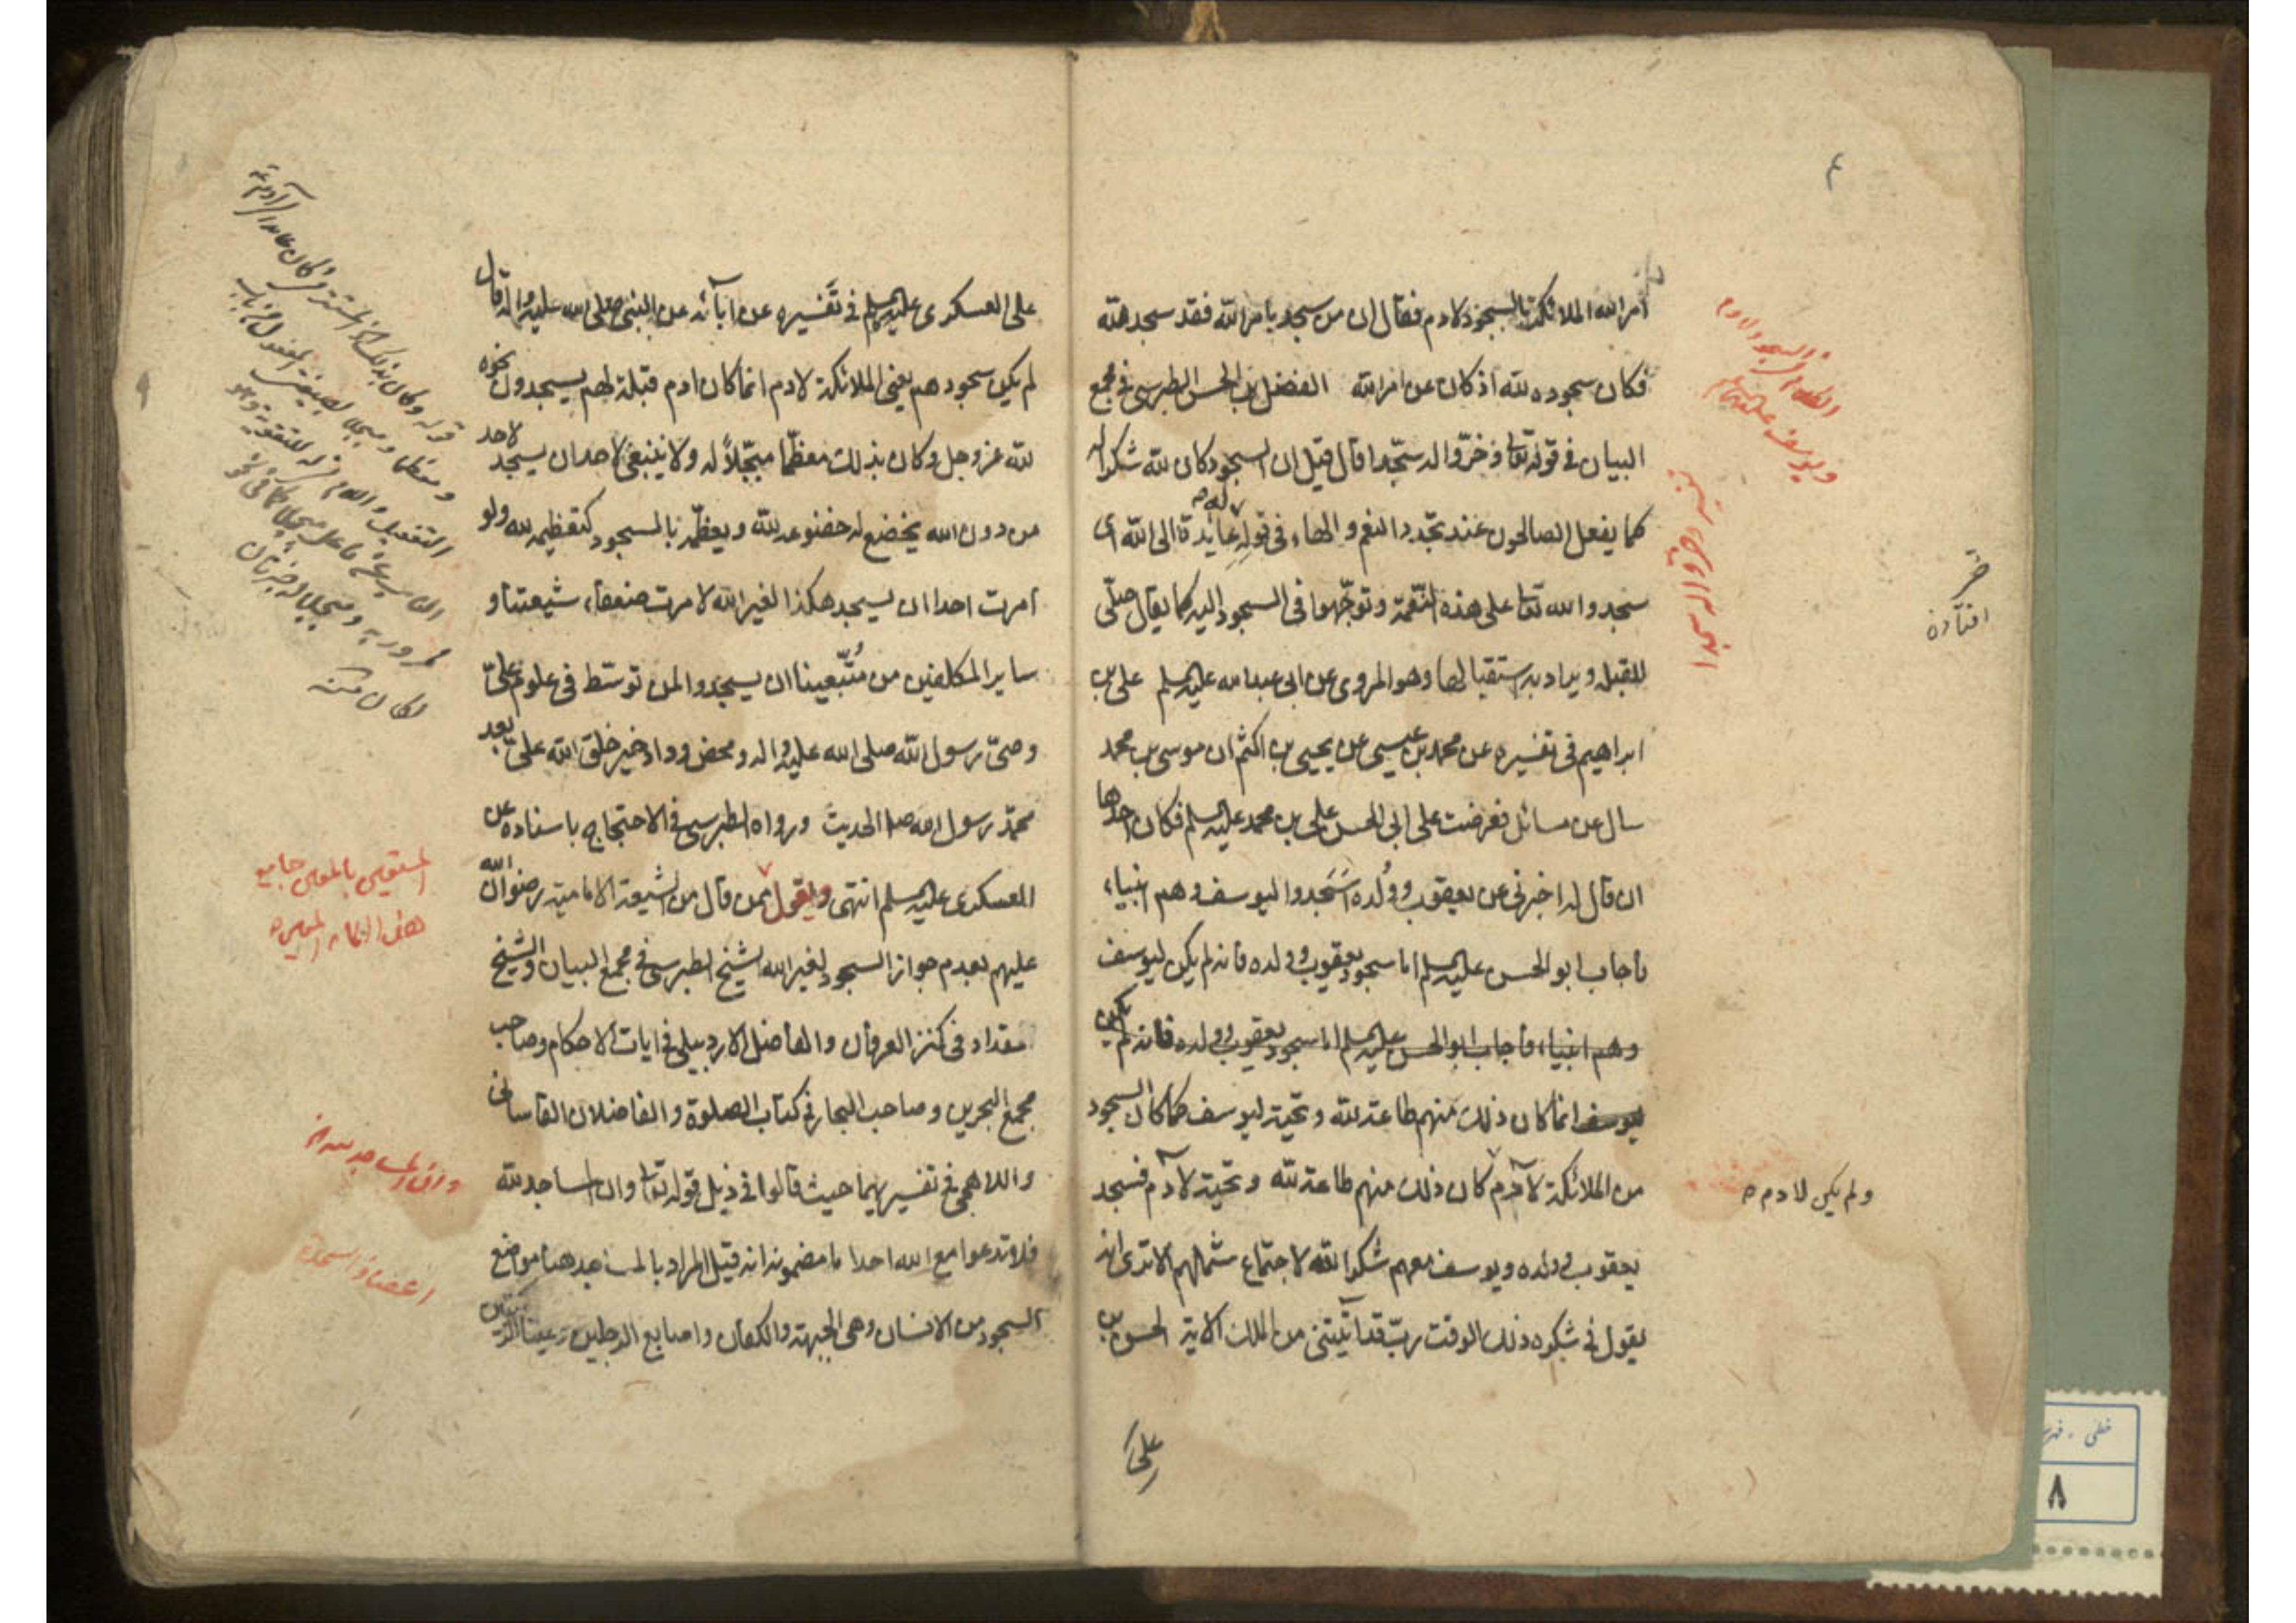 امر الله الملائكة بالسجود لادم فقال ان من سجد بامر الله فقد سجد لله
فكان سجوده لله اذ كان عن امر الله الفضل بن الحسن الطبرسى فى مجمع
البيان فى قوله تعا وخرّوا له سجّدا قال قيل ان السجود كان لله شكرا له
كما يفعل الصالحون عند تجدد النعم والهاء فى قوله له عائدة الى الله اى
سجدوا لله تعا على هذه النّعمة وتوجّهوا فى السجود اليه كما يقال صلّى
للقبلة ويراد به استقبالها وهو المروى عن ابى عبد الله عليه السلم على بن
ابراهيم فى تفسيره عن محمد بن عيسى عن يحيى بن اكثم ان موسى بن محمد
سال عن مسائل فعرضت على ابى الحسن على بن محمد عليه السلم فكان احدها
ان قال له اخبرنى عن يعقوب وولده اسجدوا ليوسف وهم انبياء
فاجاب ابو الحسن عليه السلم اما سجود يعقوب وولده فانه لم يكن ليوسف
وهم انبياء فاجاب ابو الحسن عليه السلم اما سجود يعقوب وولده فانه لم يكن
ليوسف انما كان ذلك منهم طاعة لله وتحية ليوسف كما كان السجود
من الملائكة لآدم كان ذلك منهم طاعة لله وتحية لآدم فسجد
يعقوب وولده ويوسف معهم شكرا لله لاجتماع شملهم الا ترى انه
يقول فى شكره ذلك الوقت ربّ قد آتيتنى من الملك الاية الحسن بن
على
ولم يكن لادم
خر
افتادن
تفسير وخروا له سجدا
على العسكرى عليه السلم فى تفسيره عن ابآئه عن النبى صلى الله عليه واله قال
لم يكن سجودهم يعنى الملائكة لادم انما كان ادم قبلة لهم يسجدون نحوه
لله عز وجل وكان بذلك معظّما مبجّلاً له ولا ينبغى لاحد ان يسجد لاحد
من دون الله يخضع له خضوعه لله ويعظّمه بالسجود كتعظيمه لله ولو
امرت احدا ان يسجد هكذا لغير الله لامرت ضعفاء شيعتنا و
ساير المكلفين من متّبعينا ان يسجدوا لمن توسّط فى علوم علىّ
وصىّ رسول الله صلى الله عليه واله ومحض وداد خير خلق الله علىّ بعد
محمّد رسول الله صلا الحديث ورواه الطبرسى فى الاحتجاج باسناده عن
العسكرى عليه السلم انتهى واقول ممن قال من الشيعة الامامية رضوان الله
عليهم بعدم جواز السجود لغير الله الشيخ الطبرسى فى مجمع البيان والشيخ
مقداد فى كنز العرفان والفاضل الاردبيلى فى ايات الاحكام وصاحب
مجمع البحرين وصاحب البحار فى كتاب الصلوة والفاضلان القاسانى
واللاهجى فى تفسيريهما حيث قالوا فى ذيل قوله تعا وان المساجد لله
فلا تدعوا مع الله احدا ما مضمونه انه قيل المراد بالمساجد هنا مواضع
السجود من الانسان وهى الجبهة والكفان واصابع الرجلين وعينا الركبتين
وان المساجد لله